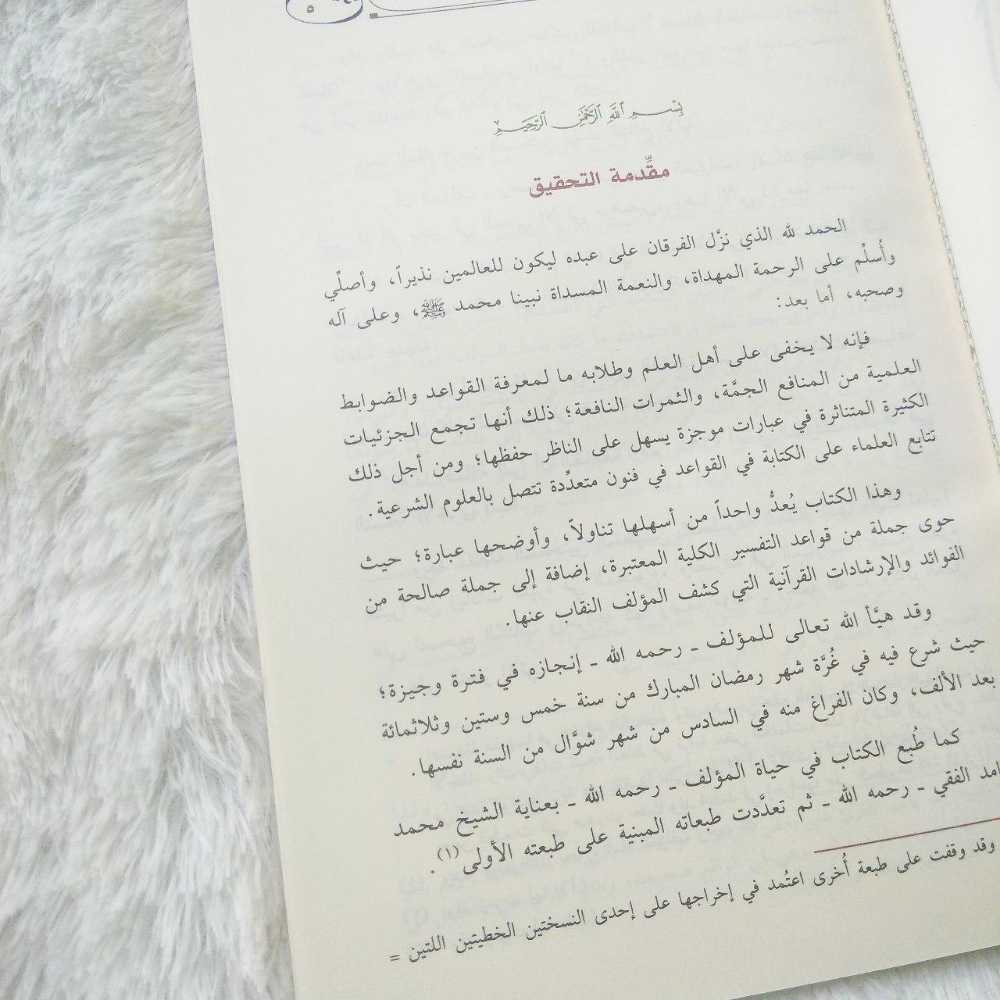 ٥
بسم الله الرحمن الرحيم
مقدِّمة التحقيق
الحمد لله الذي نزَّل الفرقان على عبده ليكون للعالمين نذيراً، وأصلّي
وأُسلّم على الرحمة المهداة، والنعمة المسداة نبينا محمد ﷺ، وعلى آله
وصحبه، أما بعد:
فإنه لا يخفى على أهل العلم وطلابه ما لمعرفة القواعد والضوابط
العلمية من المنافع الجمَّة، والثمرات النافعة؛ ذلك أنها تجمع الجزئيات
الكثيرة المتناثرة في عبارات موجزة يسهل على الناظر حفظها؛ ومن أجل ذلك
تتابع العلماء على الكتابة في القواعد في فنون متعدِّدة تتصل بالعلوم الشرعية.
وهذا الكتاب يُعدُّ واحداً من أسهلها تناولاً، وأوضحها عبارة؛ حيث
حوى جملة من قواعد التفسير الكلية المعتبرة، إضافة إلى جملة صالحة من
الفوائد والإرشادات القرآنية التي كشف المؤلف النقاب عنها.
وقد هيَّأ الله تعالى للمؤلف ـ رحمه الله ـ إنجازه في فترة وجيزة؛
حيث شرع فيه في غُرَّة شهر رمضان المبارك من سنة خمس وستين وثلاثمائة
بعد الألف، وكان الفراغ منه في السادس من شهر شوَّال من السنة نفسها.
كما طُبع الكتاب في حياة المؤلف ـ رحمه الله ـ بعناية الشيخ محمد
الفقي ـ رحمه الله ـ ثم تعدَّدت طبعاته المبنية على طبعته الأولى(١).
وقد وقفت على طبعة أُخرى اعتُمد في إخراجها على إحدى النسختين الخطيتين اللتين =